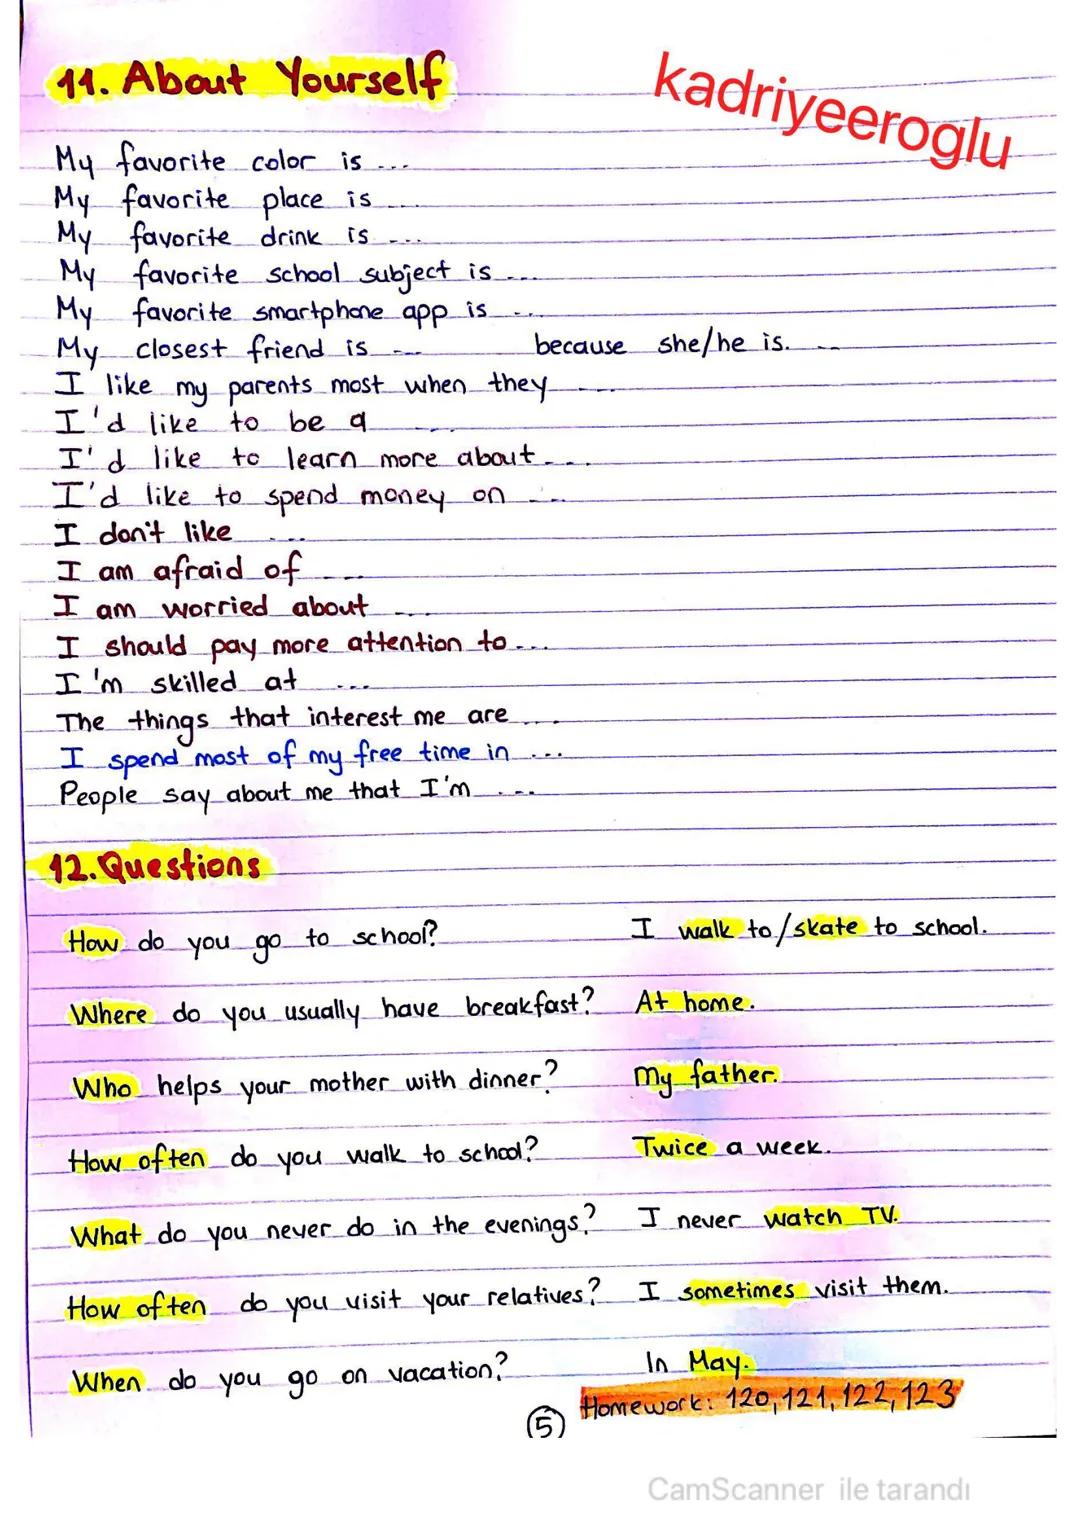 11. About Yourself
kadriyeeroglu
My favorite color is ...
My favorite place is ...
My favorite drink is ...
My favorite school subject is ...
My favorite smartphone app is ...
My closest friend is ... because she/he is. ...
I like my parents most when they ...
I'd like to be a ...
I'd like to learn more about ...
I'd like to spend money on ...
I don't like ...
I am afraid of ...
I am worried about ...
I should pay more attention to ...
I'm skilled at ...
The things that interest me are ...
I spend most of my free time in ...
People say about me that I'm ...
12. Questions
How do you go to school? I walk to/skate to school.
Where do you usually have breakfast? At home.
Who helps your mother with dinner? My father.
How often do you walk to school? Twice a week.
What do you never do in the evenings? I never watch TV.
How often do you visit your relatives? I sometimes visit them.
When do you go on vacation? In May.
Homework: 120, 121, 122, 123
5
CamScanner ile tarandı